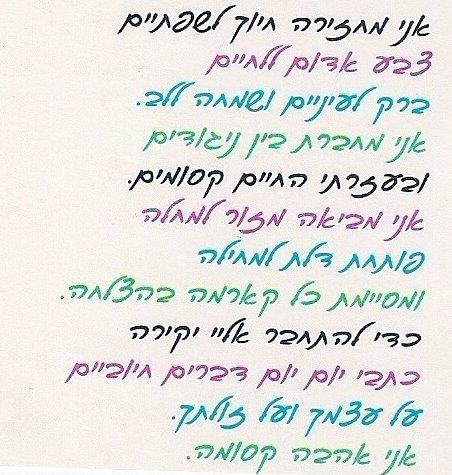 אני מחזירה חיוך לשפתיים
צבע אדום ללחיים
ברק לעיניים ושמחה ללב.
אני מחברת בין ניגודים
ובעזרתי החיים קסומים.
אני מביאה מזור למחלה
פותחת דלת למחילה
ומסיימת כל קארמה בהצלחה.
כדי להתחבר אליי יקירה
כתבי יום יום דברים חיוביים
על עצמך ועל זולתך.
אני אהבה קסומה.